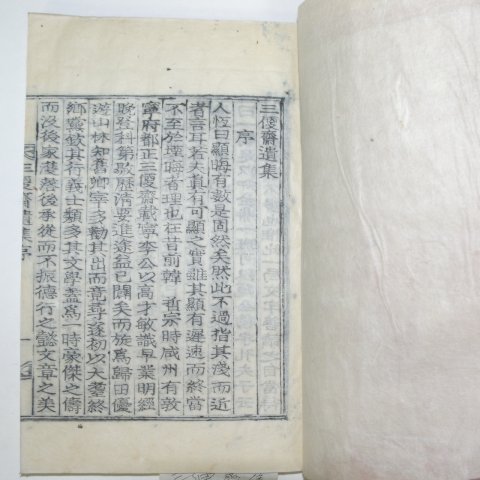 三優齋遺集
序
人恒曰顯晦有數是固然矣然此不過指其淺而近
者言耳若夫眞有可顯之實雖其顯有遲速而終當
不至於堙晦者理也在昔前韓 哲宗時咸州有敦
寧府都正三優齋載寧李公以高才敏識早業明經
晩登科第敭歷淸要進途益已闢矣而旋爲歸田優
遊山林知舊卿宰多勸其出而竟尋遂初以大耋終
鄕黨欽其行義士類多其文學蓋爲一時豪傑之儔
而沒後家
落後承從而不振德行之懿文章之美
三優齋遺集序